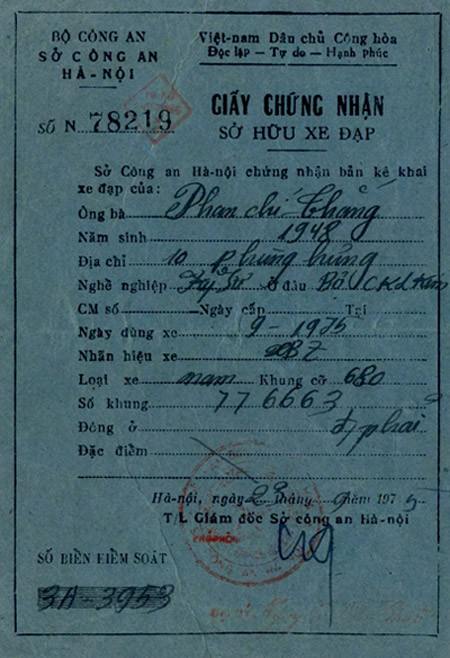 BỘ CÔNG AN
SỞ CÔNG AN
HÀ-NỘI
Việt-nam Dâu chủ Cộng hòa
Độc lập — Tự do — Hạnh phúc
SỐ N 78219
GIẤY CHỨNG NHẬN
SỞ HỮU XE ĐẠP
Sở Công an Hà-nội chứng nhận bản kê khai
xe đạp của:
Ông bà Phan chí Thắng
Năm sinh 1948
Địa chỉ 10 Phùng hưng
Nghề nghiệp Kỹ Sư Ở đâu Bộ CK LKim
CM số Ngày cấp Tại
Ngày dùng xe 9-1975
Nhãn hiệu xe
Loại xe nam Khung cỡ 680
Số khung 776663
Đóng ở đ/phải
Đặc điểm
Hà-nội, ngày 29 tháng 9 năm 1975
T/L Giám đốc Sở công an Hà-nội
SỐ BIỂN KIỂM SOÁT
3A-3953